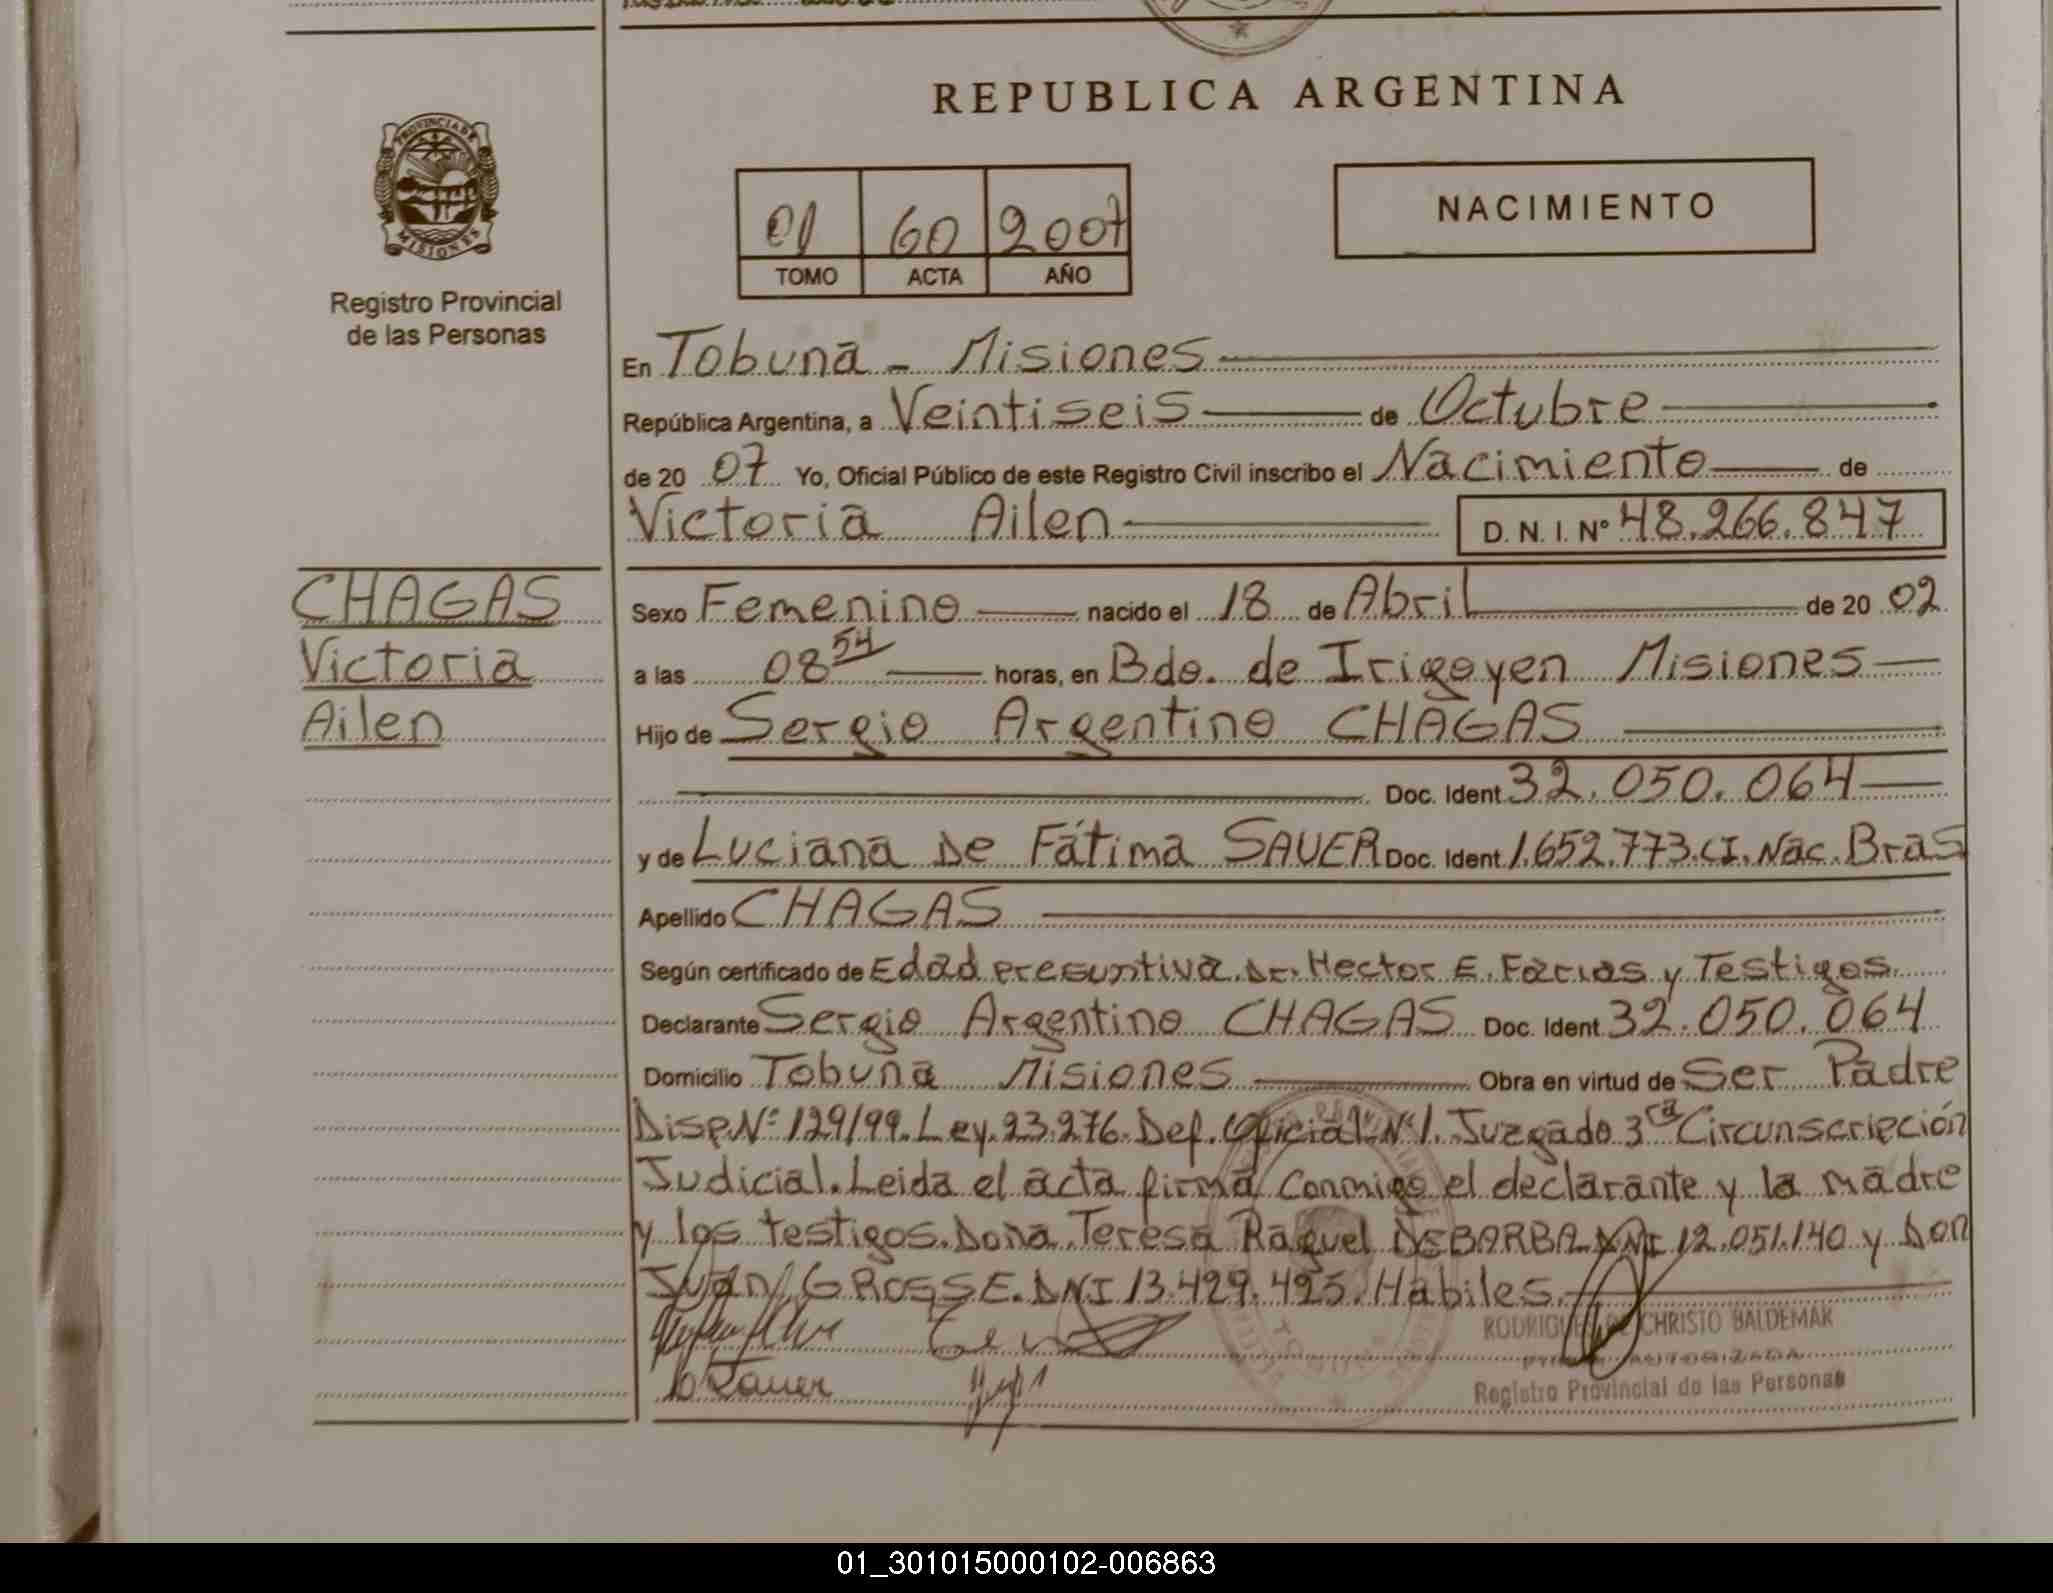 REPUBLICA ARGENTINA
PROVINCIA DE
MISIONES
Registro Provincial
de las Personas
01 60 2007
TOMO ACTA AÑO
NACIMIENTO
En Tobuna - Misiones
República Argentina, a Veintiseis de Octubre
de 20 07 Yo, Oficial Público de este Registro Civil inscribo el Nacimiento de
Victoria Ailen D. N. I. Nº 48.266.847
CHAGAS
Victoria
Ailen
Sexo Femenino nacido el 18 de Abril de 20 02
a las 08 54 horas, en Bdo. de Irigoyen Misiones
Hijo de Sergio Argentino CHAGAS
Doc. Ident 32.050.064
y de Luciana De Fátima SAUER Doc. Ident 1.652.773.CI.Nac.Bras
Apellido CHAGAS
Según certificado de Edad presuntiva Dr. Hector E. Farias y Testigos.
Declarante Sergio Argentino CHAGAS Doc. Ident 32.050.064
Domicilio Tobuna Misiones Obra en virtud de Ser Padre
Disp.Nº 129/99.Ley.23.276.Def.Oficial.Nº1.Juzgado 3ra Circunscripción
Judicial.Leida el acta firma conmigo el declarante y la madre
y los testigos.Doña.Teresa Raquel DEBARBA DNI 12.051.140 y Don
Juan GROSSE.DNI 13.429.495.Habiles.
RODRIGUEZ DE CHRISTO BALDEMAR
AUTORIZADA
Registro Provincial de las Personas
01_301015000102-006863